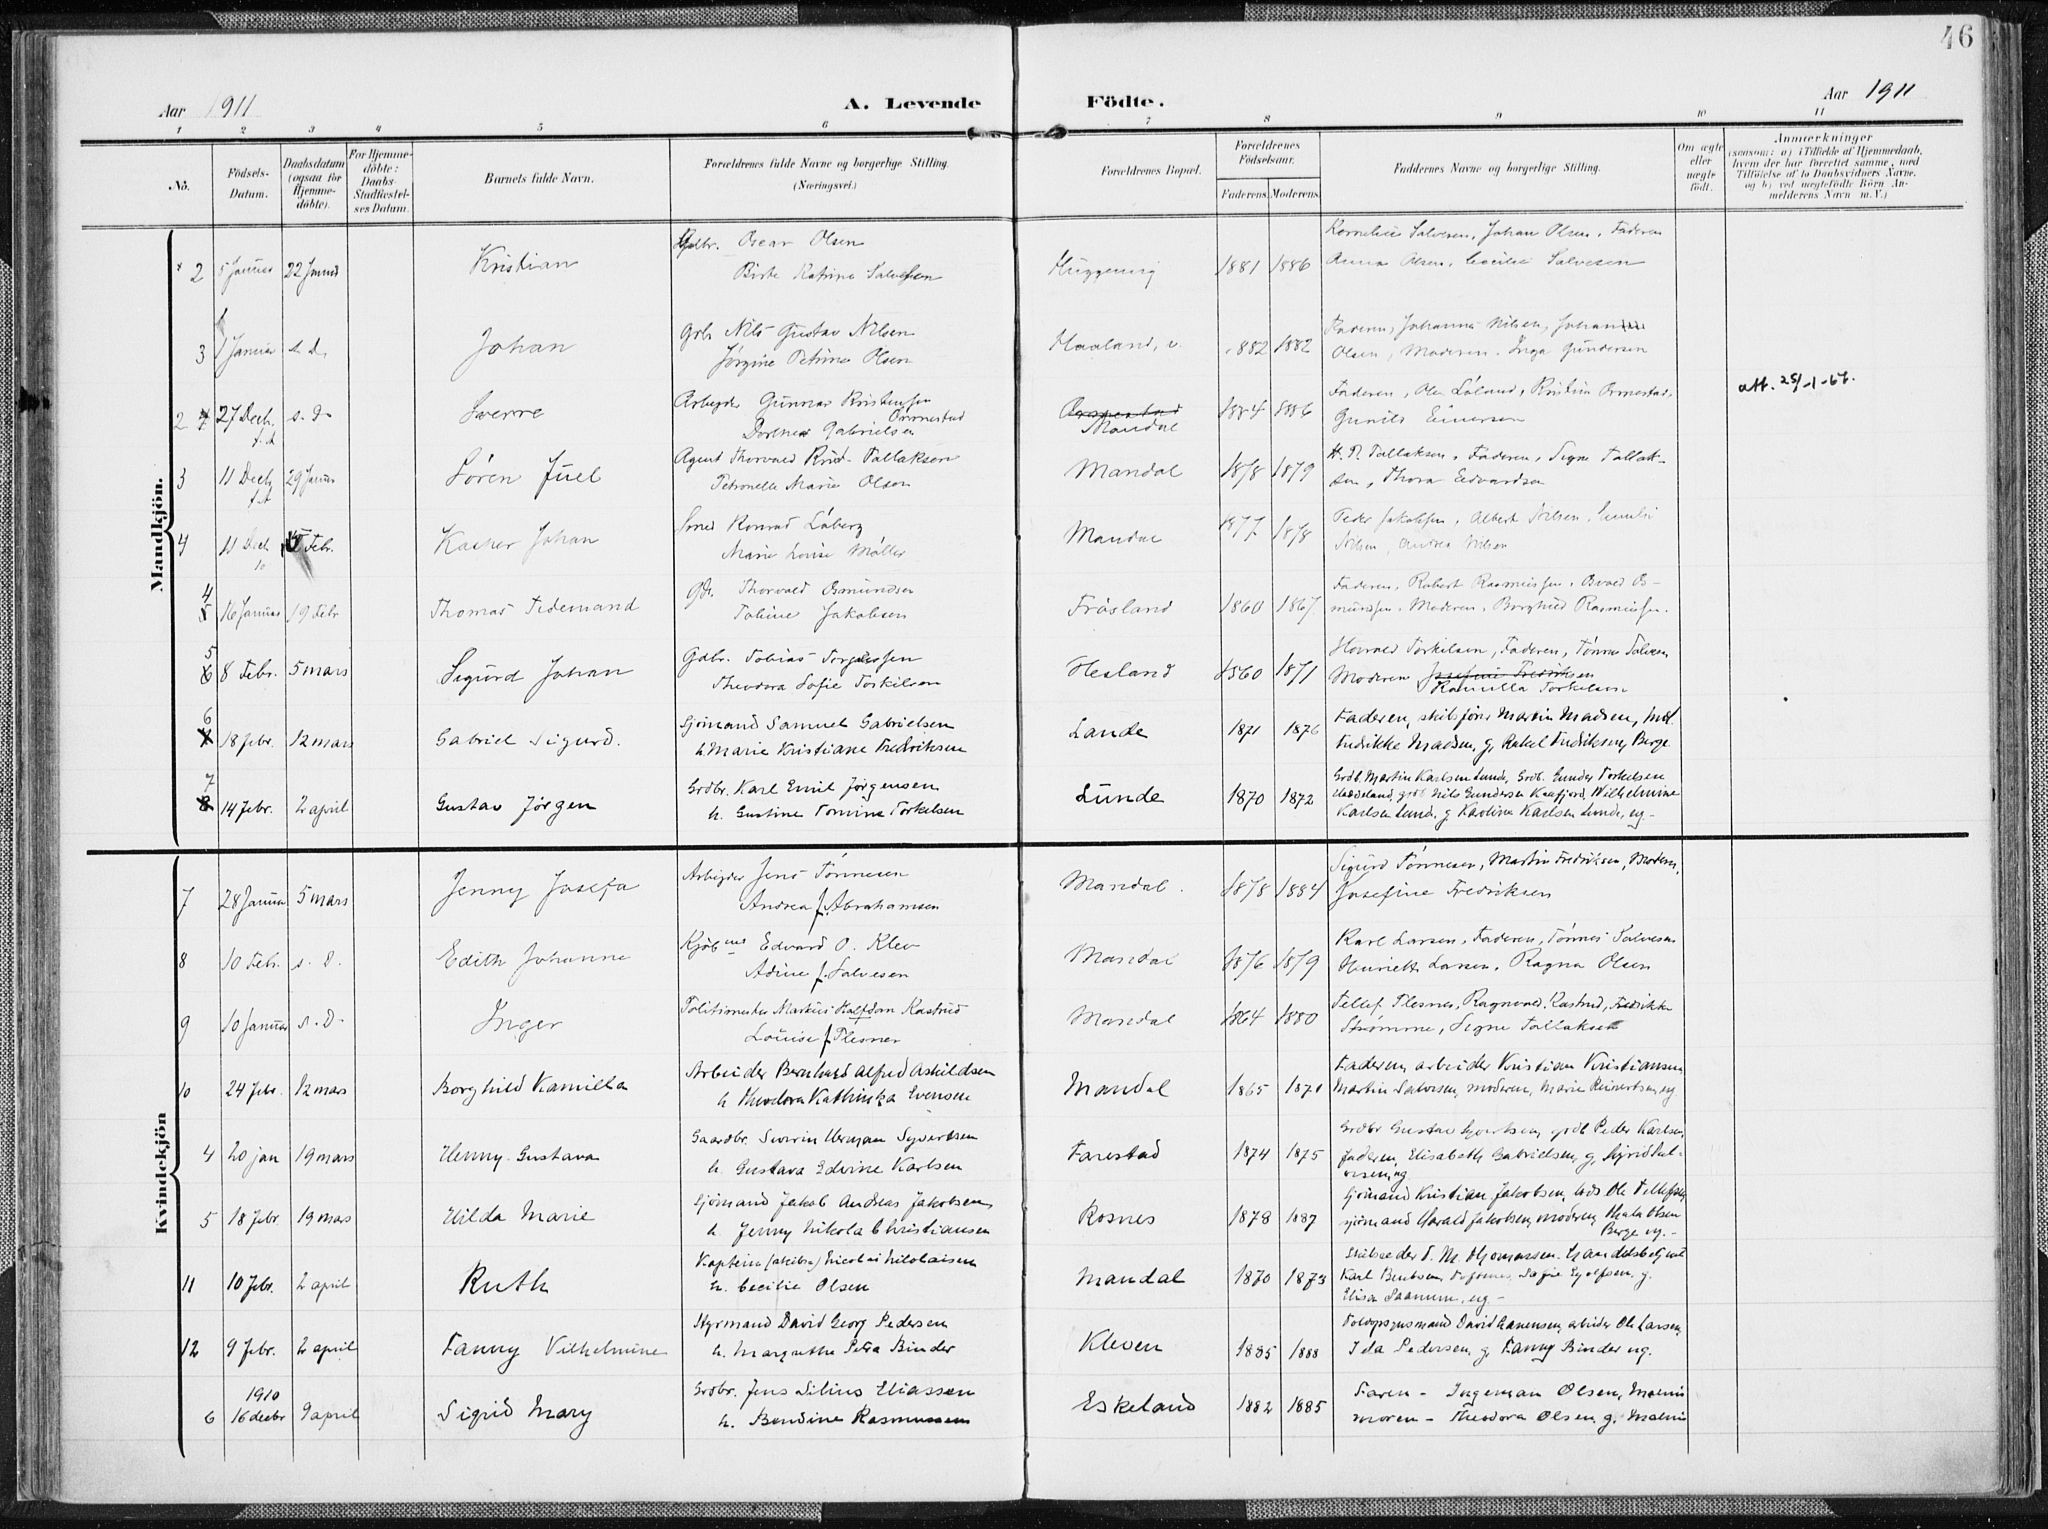 46
Aar 1911
A. Levende Födte.
Aar 1911
1 2 3 4 5 6 7 8 9 10 11
No.
Födsels-Datum.
Daabsdatum (ogsaa for Hjemme-döbte).
For Hjemme-döbte: Daabs-Stadfæstel-ses Datum.
Barnets fulde Navn.
Forældrenes fulde Navne og borgerlige Stilling. (Næringsvei.)
Forældrenes Bopæl.
Forældrenes Födselsaar.
Faderens. Moderens.
Faddernes Navne og borgerlige Stilling.
Om ægte eller uægte födt.
Anmærkninger (saasom: a) i Tilfælde af Hjemmedaab, hvem der har forrettet samme, med Tilföielse af to Daabsvidners Navne, og b) ved uægtefödte Börn An-melderens Navn m.V.)
Mandkjön.
2 5 Januar 22 Januar Kristian Gdbr. Oscar Olsen 1881 1886 Kornelius Salvesen, Johan Olsen, Faderen
Birte Katrine Salvesen Anna Olsen, Cecilie Salvesen
3 Januar s. D. Johan Grb Nils Gustav Nilsen Haaland, 1882 1882 Faderen, Johannes Nilsen, Johan
Jørgine Petrine Olsen Olsen, Moderen, Inga Gundersen
att. 25/-1-67.
2 27 Decb. s. D. Sverre Arbeider Gunnar Kristensen Ormestad Mandal 1884 1886 Faderen, Ole Løland, Kristine Ormestad,
Gabrielsen Gunild Einersen
3 11 Decb 29 Januar Søren Juel Agent Thorvald Tallaksen Mandal 1878 1879 H. P. Tallaksen, Faderen, Signe Tallak-
Petronelle Marie Olsen sen, Thora Edvardsen
4 11 Decb Febr. Kasper Johan Smed Konrad Løberg Mandal 1877 1878 Peder Jakobsen, Albert Nilsen, Emilie
Marie Louise Møller Nilsen, Andrea Nilsen
4 16 Januar 19 Febr Thomas Tidemand Gbr. Thorvald Osmundsen Frøsland 1860 1867 Faderen, Robert Rasmussen, Osvald O-
Tobine Jakobsen mundsen, Moderen, Borghild Rasmussen.
5 8 Febr. 5 mars Sigurd Johan Gdbr. Tobias Torgersen Hesland 1860 1871 Torkelsen, Faderen, Tønnes Salvesen
Theodora Sofie Torkilsen Moderen Josefine Fredriksen
Kamilla Torkelsen
6 18 febr. 12 mars Gabriel Sigurd. Sjömand Samuel Gabrielsen Lande 1871 1876 Faderen, skibsfører Martin Madsen, Mdl.
h. Marie Kristiane Fredriksen Fredrikke Madsen, g, Rakel Fredriksen, Berge
7 14 febr. 2 april Gustav Jörgen Grdbr. Karl Emil Jörgensen Lunde 1870 1872 Grdb. Martin Karlsen Lunde, Grdb. Gunder Torkelsen
h. Gustine Tomine Torkelsen grdb Nils Gundersen Kaafjord, Wilhelmine
Karlsen Lunde, g Karoline Karlsen Lunde, ug-
Kvindekjön
7 28 Januar 5 mars Jenny Josefa Arbeider Jens Tønnesen Mandal. 1878 1884 Sigurd Tønnesen, Martin Fredriksen, Moderen,
Andrea f. Abrahamsen Josefine Fredriksen
8 10 Febr. s. D. Edith Johanne Kjøbmd Edvard O. Klev Mandal 1876 1879 Karl Larsen, Faderen, Tønnes Salvesen
Adine f. Salvesen Henriette Larsen, Ragna Olsen
9 10 Januar s. D. Inger Politimester Markus Halfdan Kastrud Mandal 1864 1880 Tellef Plesner, Ragnvald Kastrud, Fredrikke
Louise f. Plesner Strømme, Signe Tallaksen
10 24 febr. 12 mars Borghild Kamilla Arbeider Bernhard Alfred Askildsen Mandal 1865 1871 Faderen, arbeider Kristian Kristiansen
h Theodora Kathinka Svensen Martin Salvesen, moderen, Marie Reinertsen, ug
4 20 jan 19 mars Henny Gustava Gaardbr. Severin Herman Syvertsen Farestad 1874 1875 Grdbr Gustav Syvertsen, grdb Peder Karlsen,
h. Gustava Edvine Karlsen faderen, Elisabeth Gabrielsen, g,
5 18 febr. 19 mars Hilda Marie Sjömand Jakob Andreas Jakobsen Rosnes 1878 1887 Sjömand Kristian Jakobsen, lods Ole Tellefsen,
h. Jenny Nikola Christiansen sjömand Harald Jakobsen, moderen, Thala Olsen
Berge ug.-
11 10 febr. 2 april Ruth Kaptein (skibs) Nicolai Nikolaisen Mandal 1870 1873 Skibsreder T. M. Thomassen, handelsbetjent
h. Cecilie Olsen Karl Berntsen, Sofie Eyolfsen, g.
Elise Saanum, ug-
12 9 febr. 2 april Fanny Vilhelmine Styrmand David Georg Pedersen Kleven 1885 1888 David Larensen, arbeider Ole Larsen,
h. Margrethe Petra Binder Ida Pedersen, g, Fanny Binder ug.
1910
6 16 decbr 9 april Sigrid Mary Grdbr. Jens Silius Eliassen Eskeland 1882 1885 Faren - Ingeman Olsen, Malmö
h. Bendine Rasmussen moren - Theodora Olsen, g, Malmö